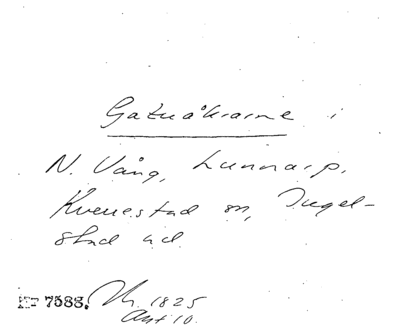 Gatuåkrarne i
N. Vång, Lunnarp,
Kvenestad m, Ingel-
stad hd.
7588. 1825
Akt 10.